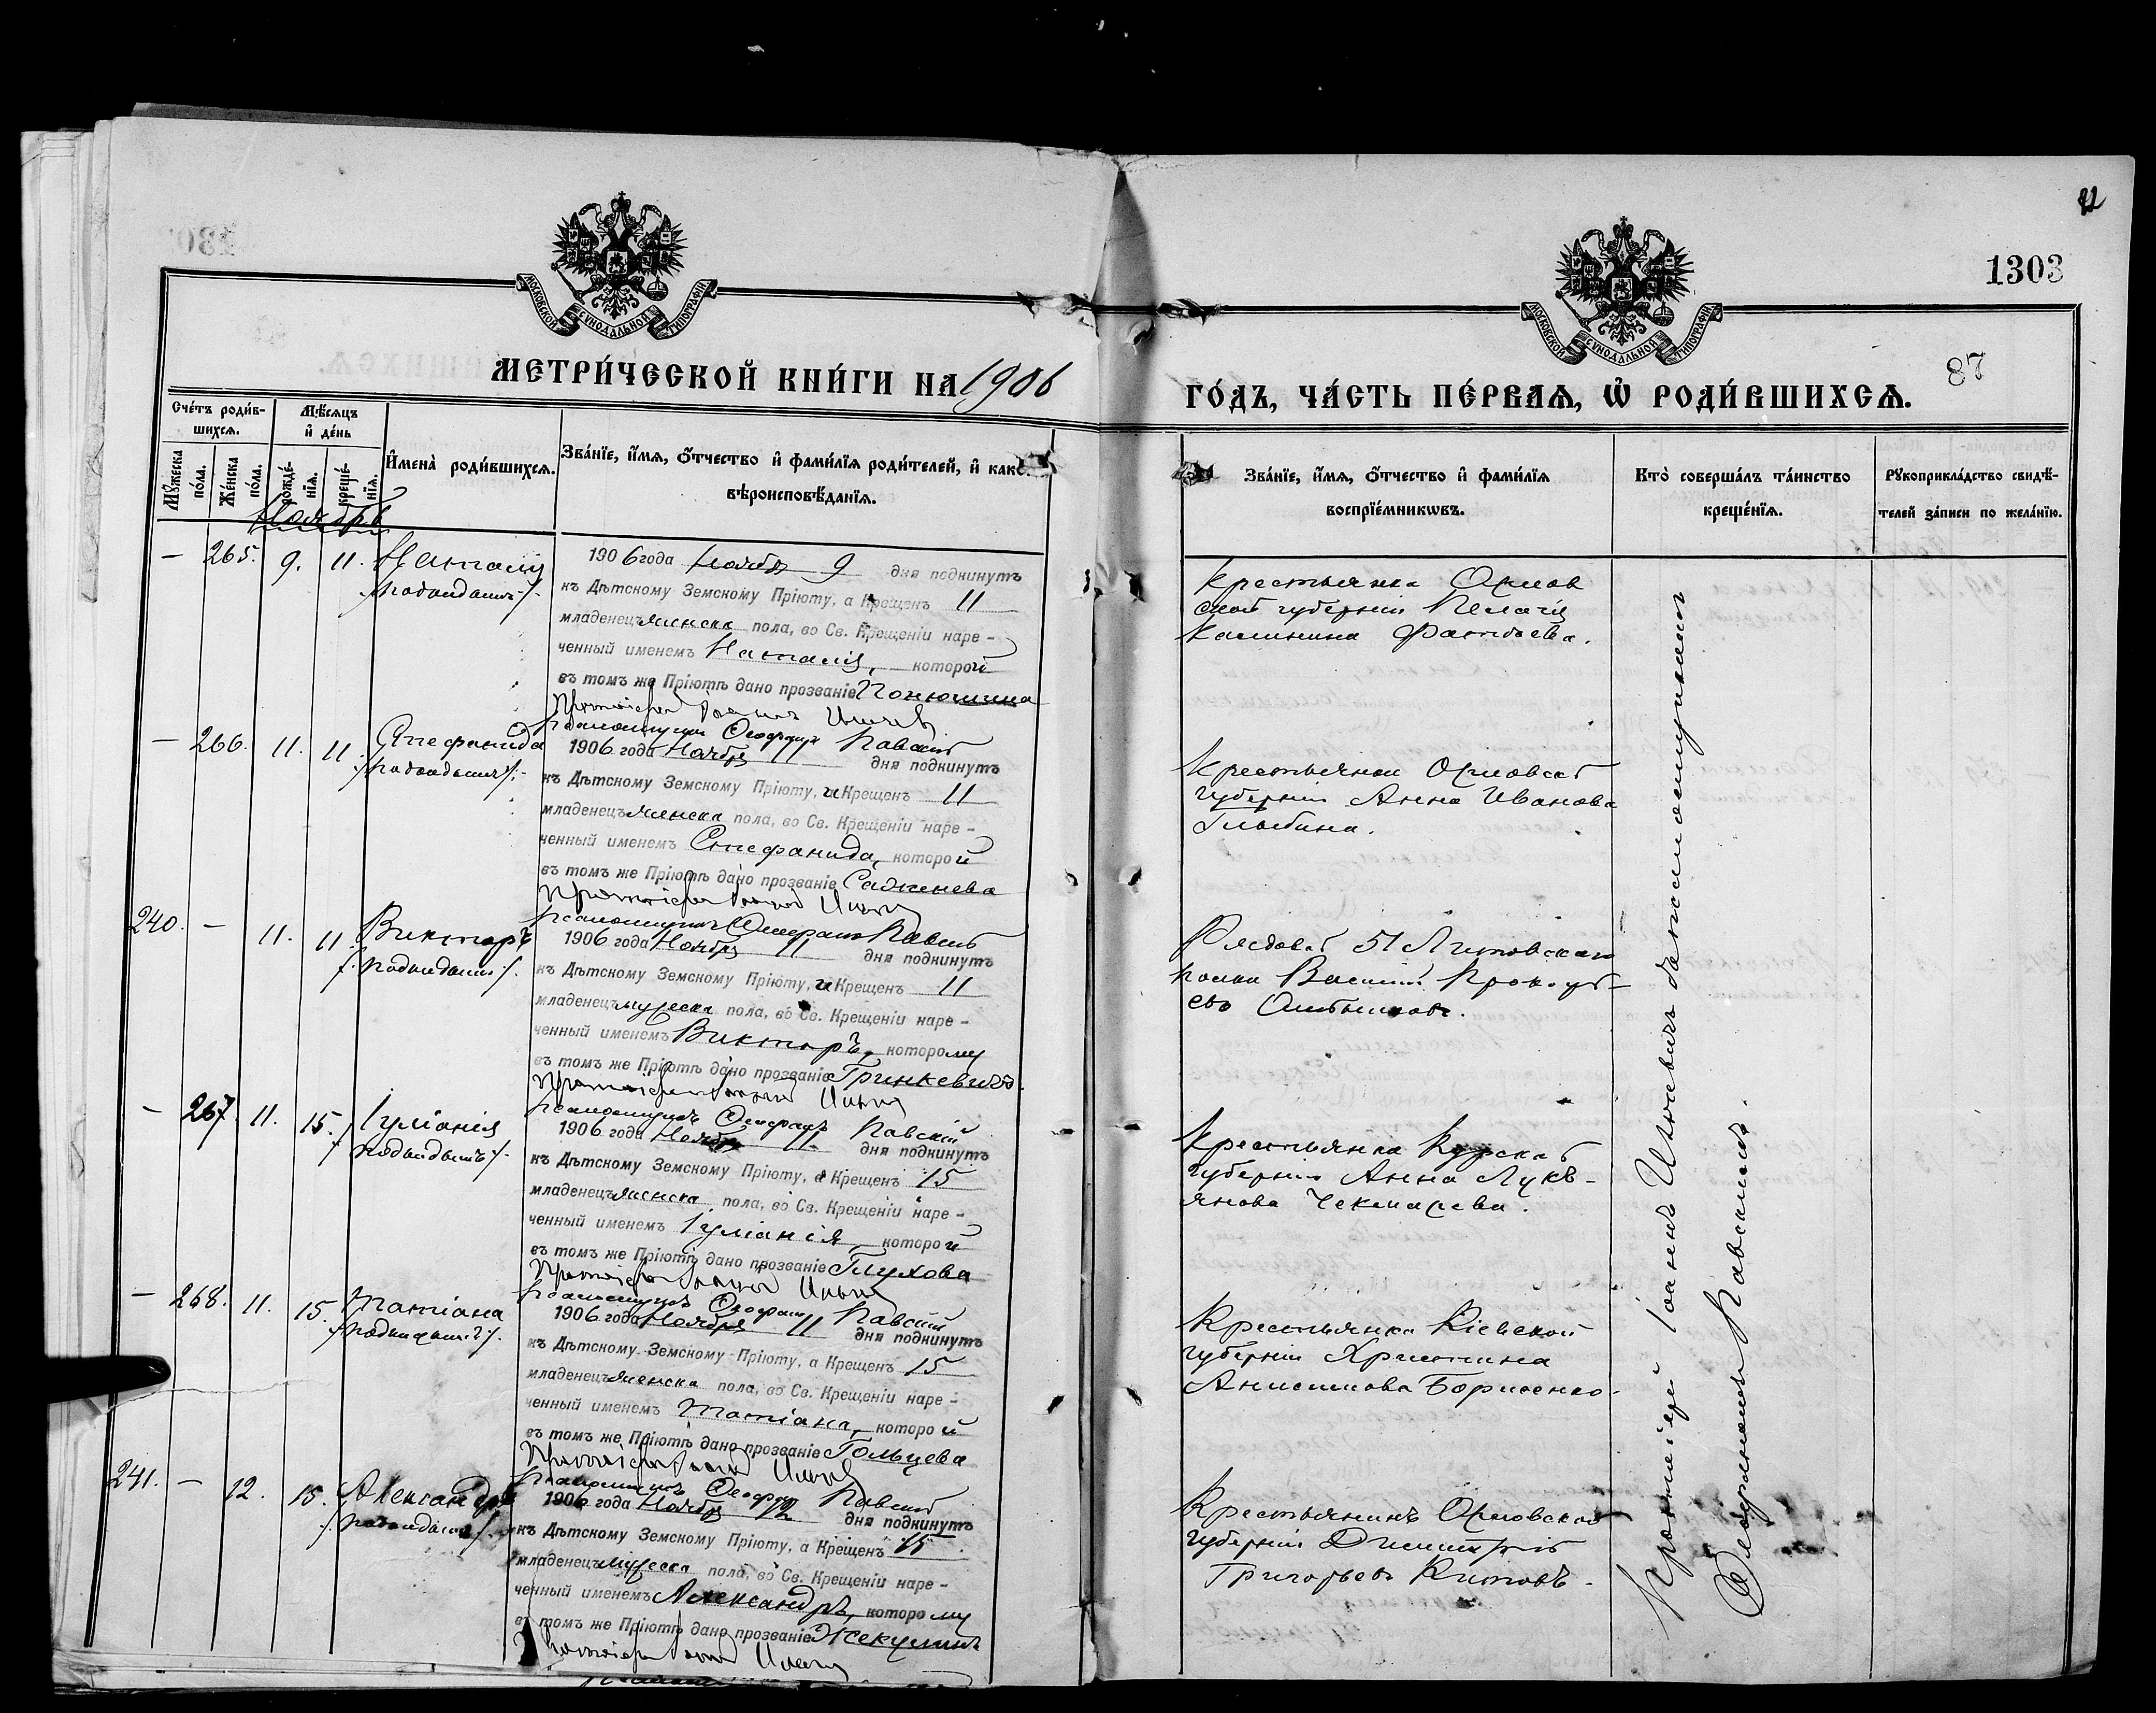 1303
87
МОСКОВСКОЙ СУНОДАЛЬНОЙ ТИПОГРАФІИ
МОСКОВСКОЙ СУНОДАЛЬНОЙ ТИПОГРАФІИ
МЕТРИ́ЧЕСКОЙ КНИ́ГИ НА 1906
ГО́ДЪ, ЧА́СТЬ ПЕ́РВАЯ, Ѡ РОДИ́ВШИХСЯ.
Сче́тъ роди́в-
шихся.
Мѣ́сяцъ
и де́нь
Му́жеска
по́ла.
Же́нска
по́ла.
рожде́-
нїя.
креще́-
нїя.
Имена̀ роди́вшихся.
Зва́нїе, и́мя, о́тчество и фами́лїя роди́телей, и како́
вѣроисповѣ́данїя.
Зва́нїе, и́мя, о́тчество и фами́лїя
воспрїе́мникѡвъ.
Кто̀ соверша́лъ та́инство
креще́нїя.
Рукоприкла́дство свидѣ́-
телей за́писи по жела́нїю.
Ноябрь
— 265. 9. 11. Наталія
1906 года Ноября 9 дня подкинутъ
къ Дѣтскому Земскому Пріюту, а Крещенъ 11
младенецъ женска пола, во Св. Крещеніи наре-
ченный именемъ Наталія, которой
въ томъ же Пріютѣ дано прозваніе
Протоіерей Іоаннъ
Псаломщикъ Ѳеофанъ Павскій
Крестьянка Орлов
ской губерніи Пелагія
Калинина
— 266. 11. 11. Стефанида
1906 года Ноября 11 дня подкинутъ
къ Дѣтскому Земскому Пріюту, и Крещенъ 11
младенецъ женска пола, во Св. Крещеніи наре-
ченный именемъ Стефанида, которой
въ томъ же Пріютѣ дано прозваніе
Протоіерей Іоаннъ
Псаломщикъ Ѳеофанъ Павскій
Крестьянка Орловской
губерніи Анна Иванова
240. — 11. 11. Викторъ
1906 года Ноября 11 дня подкинутъ
къ Дѣтскому Земскому Пріюту, и Крещенъ 11
младенецъ мужеска пола, во Св. Крещеніи наре-
ченный именемъ Викторъ, которому
въ томъ же Пріютѣ дано прозваніе Гринкевичъ.
Протоіерей Іоаннъ
Псаломщикъ Ѳеофанъ Павскій
Рядовой 51 Литовскаго
полка Василій Прокофь-
евъ
— 267. 11. 15. Іуліанія
1906 года Ноября 11 дня подкинутъ
къ Дѣтскому Земскому Пріюту, а Крещенъ 15
младенецъ женска пола, во Св. Крещеніи наре-
ченный именемъ Іуліанія, которой
въ томъ же Пріютѣ дано прозваніе Глухова
Протоіерей Іоаннъ
Псаломщикъ Ѳеофанъ Павскій
Крестьянка Курской
губерніи Анна Лукь-
янова Чекмарева.
— 268. 11. 15. Татіана
1906 года Ноября 11 дня подкинутъ
къ Дѣтскому Земскому Пріюту, а Крещенъ 15
младенецъ женска пола, во Св. Крещеніи наре-
ченный именемъ Татіана, которой
въ томъ же Пріютѣ дано прозваніе Гольцева
Протоіерей Іоаннъ
Псаломщикъ Ѳеофанъ Павскій
Крестьянка Кіевской
губерніи Христина
Анисимова Борисенко.
241. — 12. 15. Александръ
1906 года Ноября 12 дня подкинутъ
къ Дѣтскому Земскому Пріюту, а Крещенъ 15
младенецъ мужеска пола, во Св. Крещеніи наре-
ченный именемъ Александръ, которому
въ томъ же Пріютѣ дано прозваніе Жекулинъ
Протоіерей Іоаннъ
Крестьянинъ Орловской
губерніи Димитрій
Григорьевъ Китовъ.
Протоіерей Іоаннъ съ псаломщикомъ
Павскимъ.